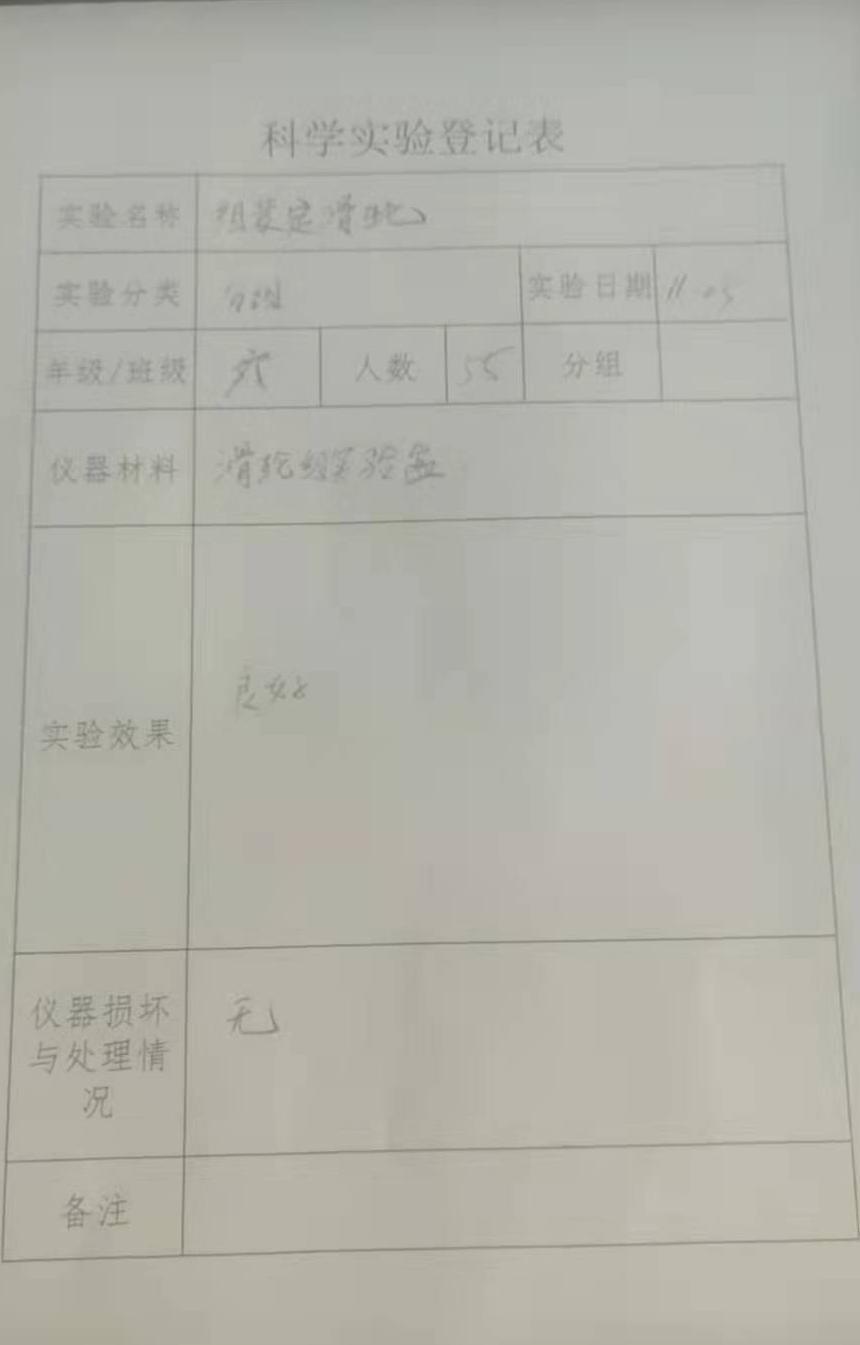 科学实验登记表
实验名称 组装定滑轮
实验分类 实验日期 11.05
年级/班级 六 人数 55 分组
仪器材料 滑轮组实验盒
实验效果 良好
仪器损坏与处理情况 无
备注